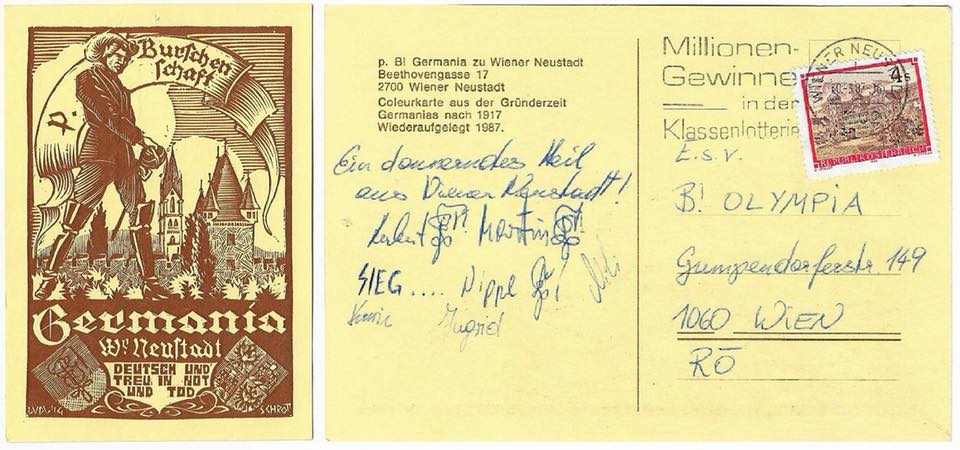 p. Burschen
schaft
Germania
Wr. Neustadt
DEUTSCH UND
TREU IN NOT
UND TOD
LUDWIG SCHROTT
p. B! Germania zu Wiener Neustadt
Beethovengasse 17
2700 Wiener Neustadt
Coleurkarte aus der Gründerzeit
Germanias nach 1917
Wiederaufgelegt 1987.
Ein donnerndes Heil
aus Wiener Neustadt!
Martin
SIEG....
Ingrid
Millionen-
Gewinne
in der
Klassenlotterie
WIENER NEUST
4 S
REPUBLIK ÖSTERREICH
E.s.v.
B! OLYMPIA
Gumpendorferstr. 149
1060 WIEN
RÖ